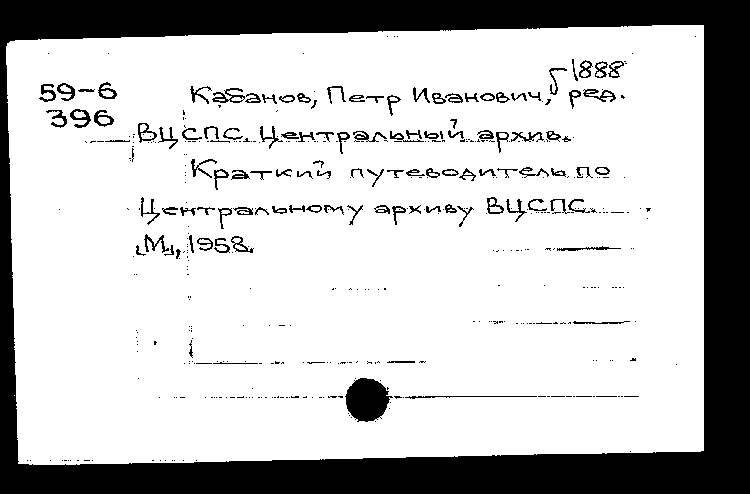 59-6 Кабанов, Петр Иванович, 1888 ред.
396
ВЦСПС. Центральный архив.
Краткий путеводитель по
Центральному архиву ВЦСПС.
[М], 1958.